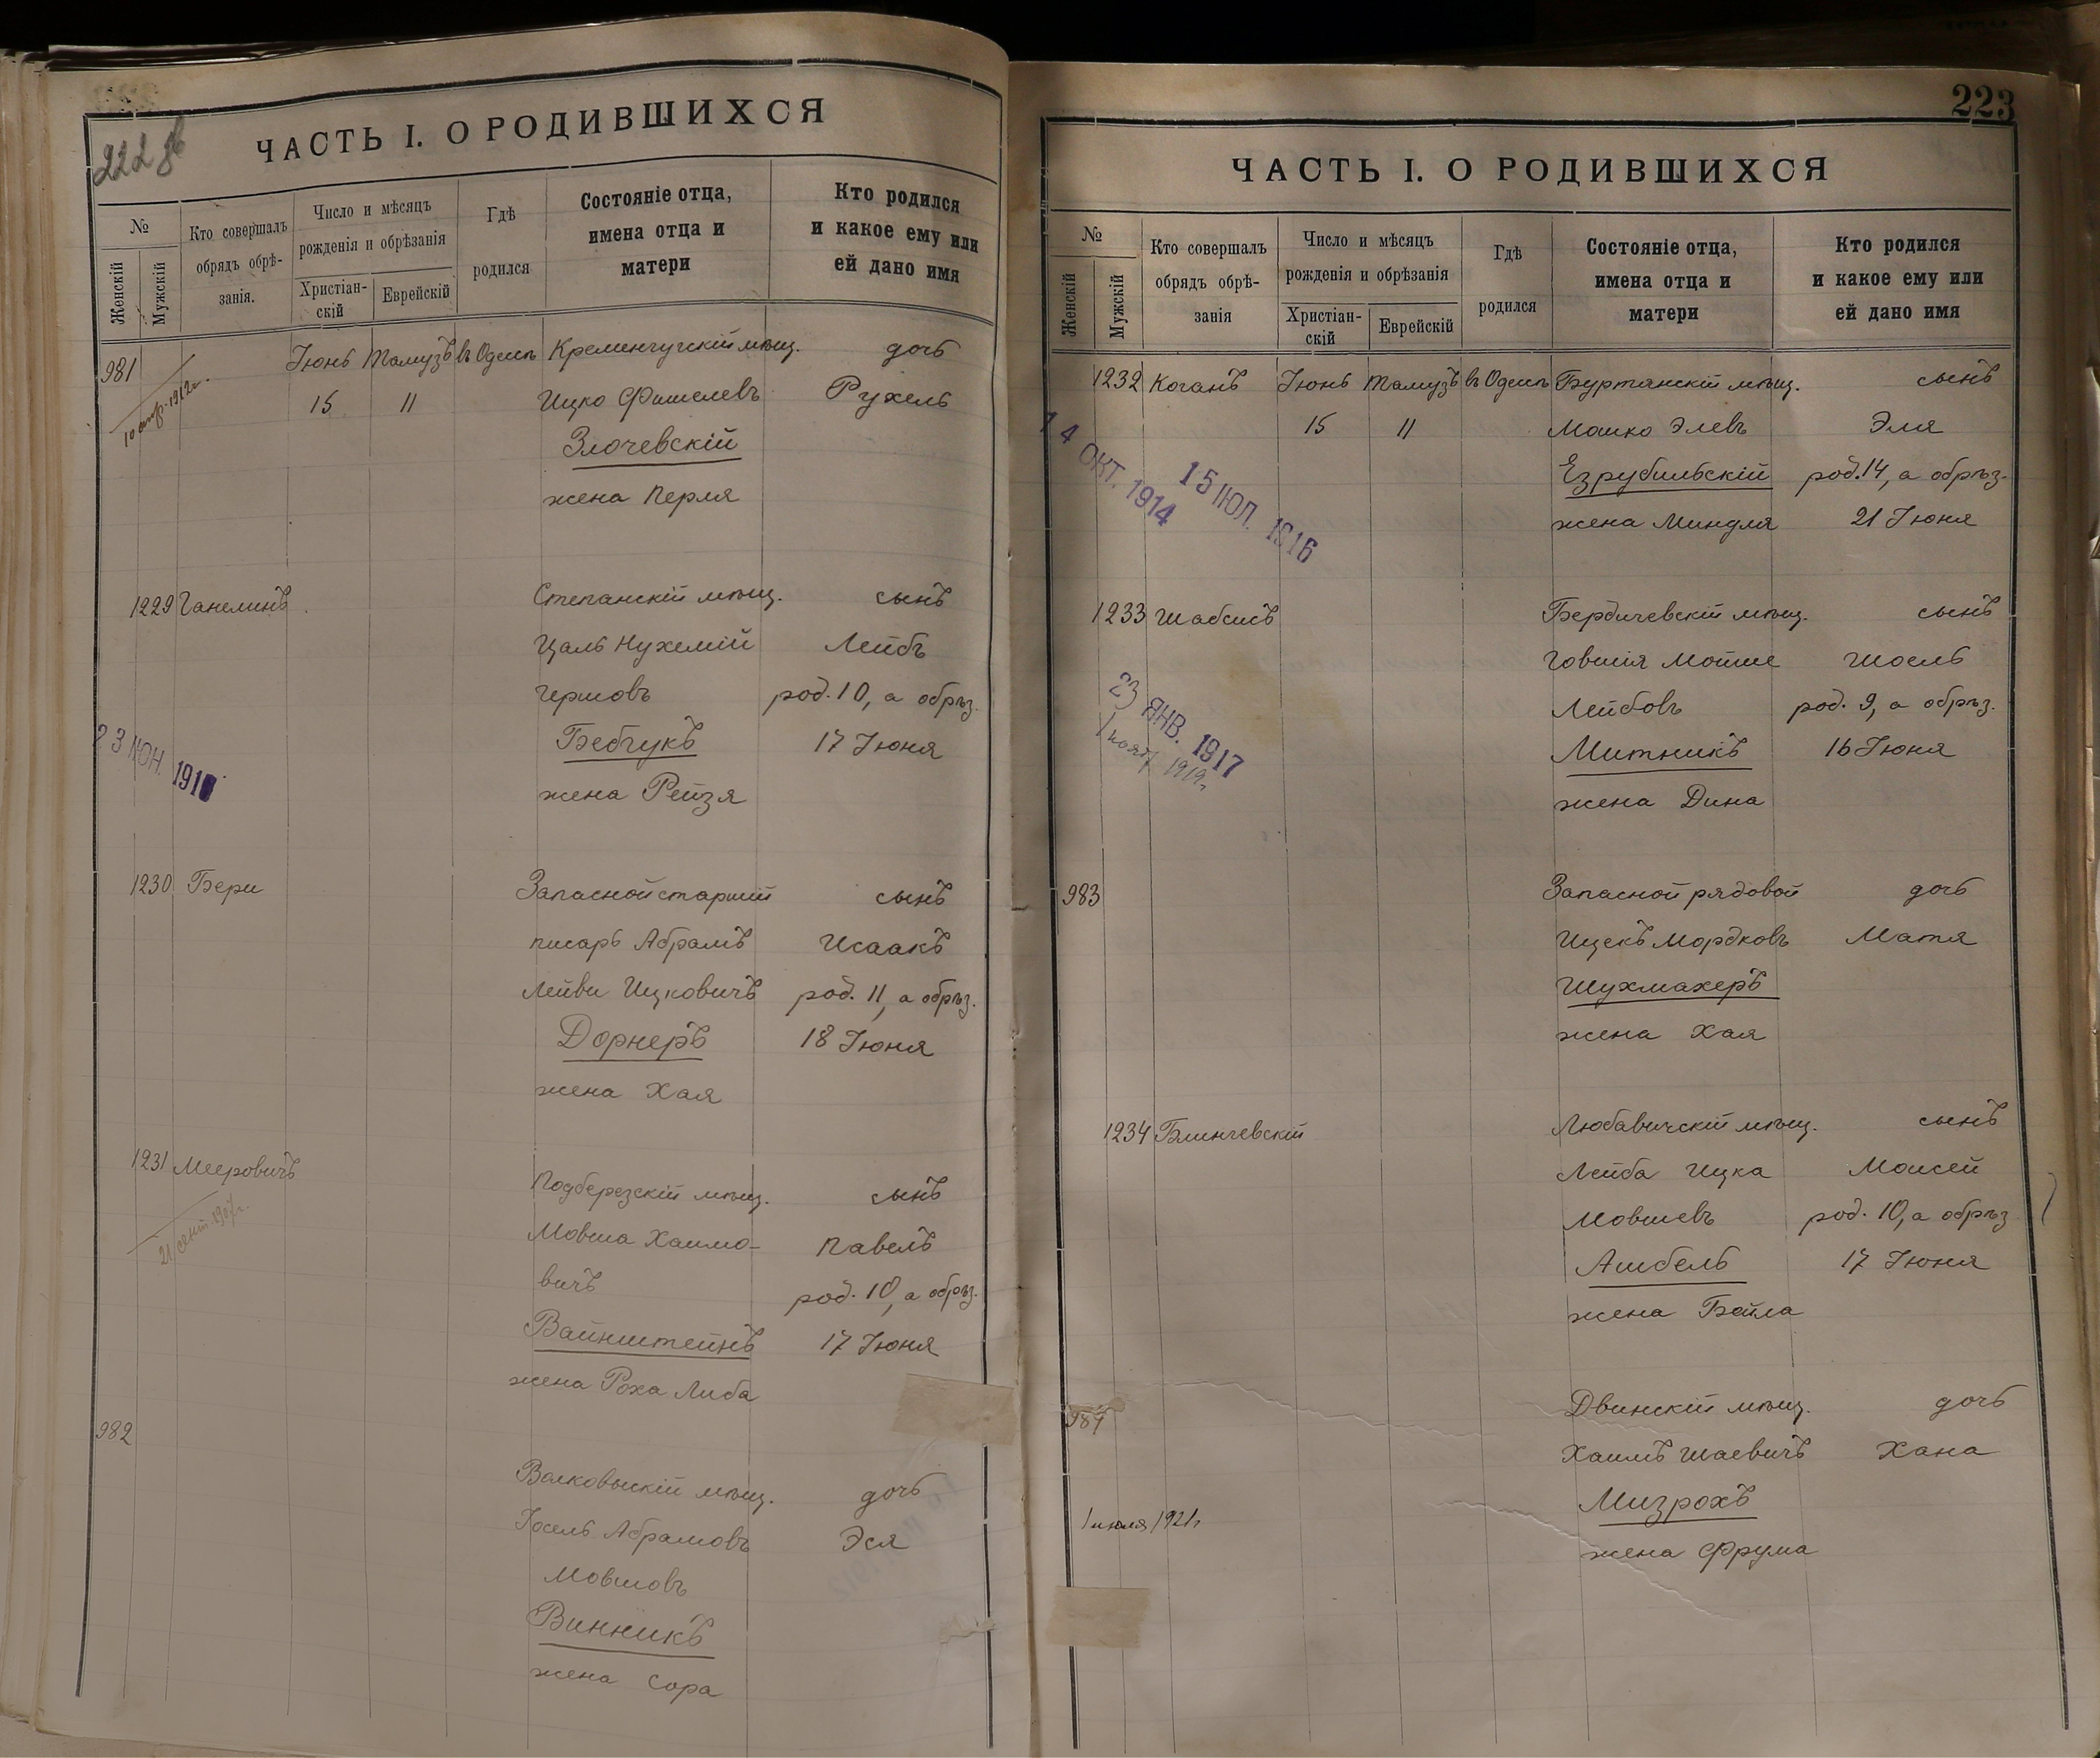 222 об
ЧАСТЬ I. О РОДИВШИХСЯ
№
Женскій
Мужскій
Кто совершалъ
обрядъ обрѣ-
занія.
Число и мѣсяцъ
рожденія и обрѣзанія
Христіан-
скій
Еврейскій
Гдѣ
родился
Состояніе отца,
имена отца и
матери
Кто родился
и какое ему или
ей дано имя
981 Іюнь Тамузъ въ Одессѣ Кременчугскій мѣщ. дочь
15 11 Ицко Фишелевъ Рухель
Злочевскій
жена Перля
1912г.
1229 Ганелинъ Степанскій мѣщ. сынъ
Цаль Нухемій Лейбъ
Гершовъ род. 10, а обрѣз.
Бебчукъ 17 Іюня
жена Рейзя
23 ІЮН. 191
1230 Бери Запасной старшій сынъ
писарь Абрамъ Исаакъ
Лейви Ицковичъ род. 11, а обрѣз.
Дорнеръ 18 Іюня
жена Хая
1231 Мееровичъ Подберезскій мѣщ. сынъ
Мовша Хаимо- Павелъ
вичъ род. 10, а обрѣз.
Вайнштейнъ 17 Іюня
жена Роха Либа
21 сент.
982 Волковыскій мѣщ. дочь
Іосель Абрамовъ Эся
Мовшовъ
Винникъ
жена Сора
223
ЧАСТЬ I. О РОДИВШИХСЯ
№
Женскій
Мужскій
Кто совершалъ
обрядъ обрѣ-
занія
Число и мѣсяцъ
рожденія и обрѣзанія
Христіан-
скій
Еврейскій
Гдѣ
родился
Состояніе отца,
имена отца и
матери
Кто родился
и какое ему или
ей дано имя
1232 Коганъ Іюнь Тамузъ въ Одессѣ Буртянскій мѣщ. сынъ
15 11 Мошко Элевъ Эля
Езрубильскій род. 14, а обрѣз.
жена Миндля 21 Іюня
14 ОКТ. 1914
15 ІЮЛ. 1916
1233 Шабсисъ Бердичевскій мѣщ. сынъ
Говшія Мойше Шоель
Лейбовъ род. 9, а обрѣз.
Митникъ 16 Іюня
жена Дина
23 ЯНВ. 1917
1919г.
983 Запасной рядовой дочь
Ицекъ Мордковъ Матя
Шухмахеръ
жена Хая
1234 Блинчевскій Любавичскій мѣщ. сынъ
Лейба Ицка Моисей
Мовшевъ род. 10, а обрѣз
Ашбель 17 Іюня
жена Бейла
984 Двинскій мѣщ. дочь
Хаимъ Шаевичъ Хана
Мизрохъ
жена Фрума
1 июля 1921г